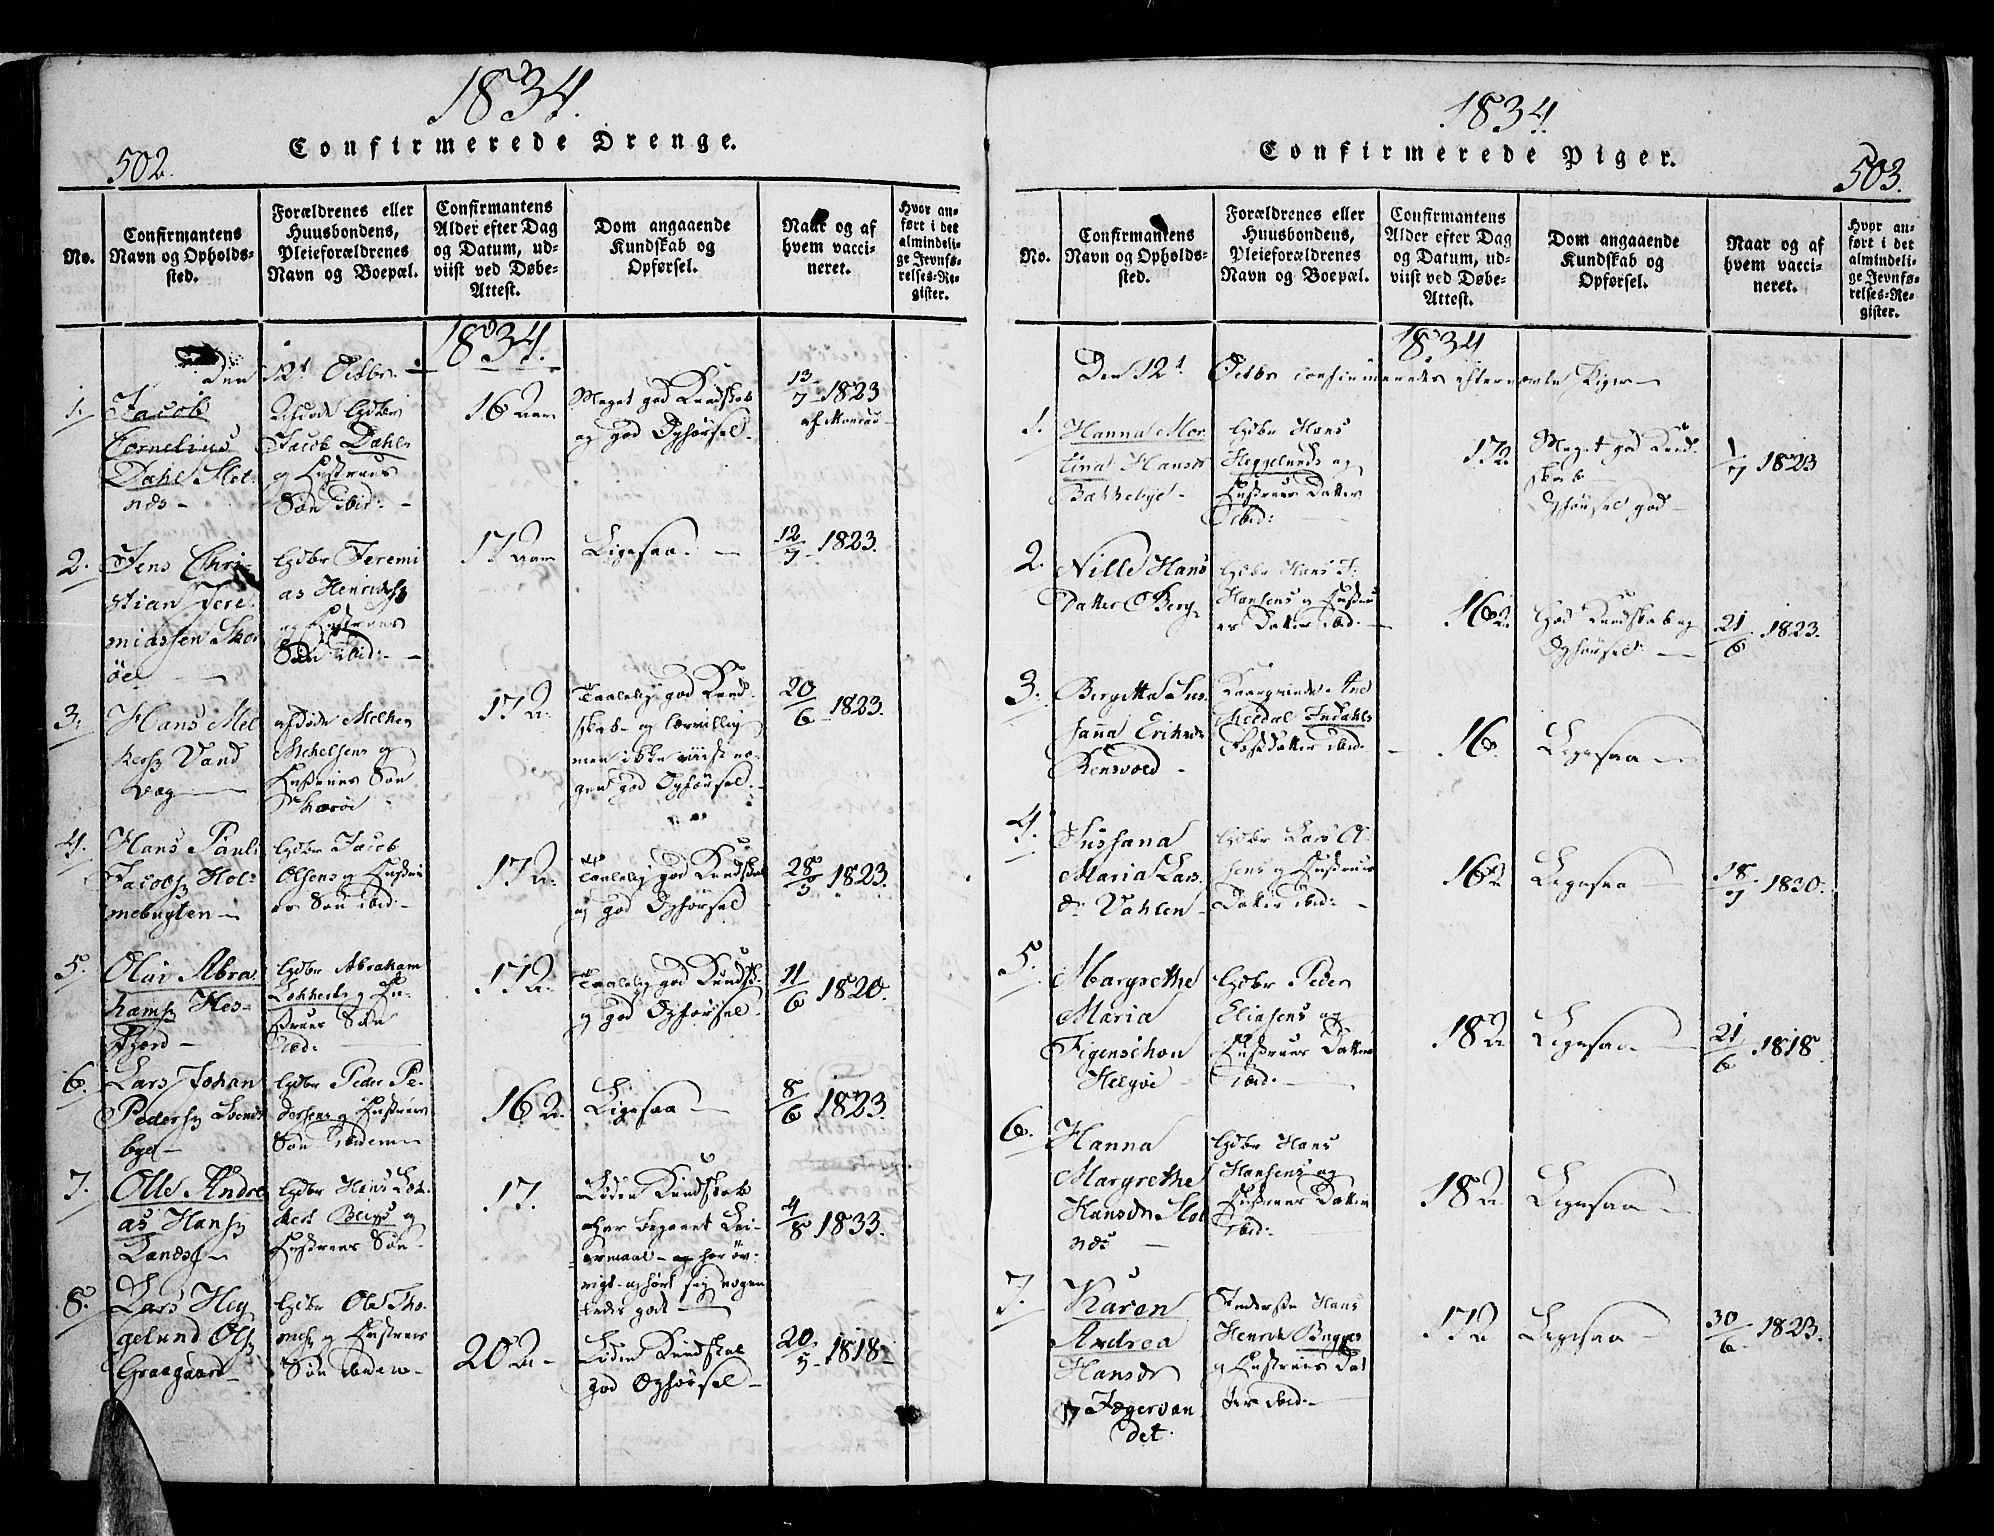 1834.
Confirmerede Drenge.
502.
No.
Confirmantens
Navn og Opholds-
sted.
Forældrenes eller
Huusbondens,
Pleieforældrenes
Navn og Boepæl.
Confirmantens
Alder efter Dag
og Datum, ud-
viist ved Døbe-
Attest.
Dom angaaende
Kundskab og
Opførsel.
Naar og af
hvem vacci-
neret.
Hvor an-
ført i det
almindeli-
ge Jevnfø-
relses-Re-
gister.
1834.
Den 12t Octbr.
1.
Jacob
Cornelius
Dahl Slet-
næs -
Gdbr
Jacob Dahls
og Hustrues
Søn ibid: -
16 Aar
Meget god Kundskab
og god Opførsel.
13/7 1823
af Monrad
2.
Jens Chri-
stian Jere-
miassen Skor-
öe -
Gdbr Jeremi
as Henriks
og Hustrues
Søn ibid: -
17 Aar
Ligesaa -
12/7 1823.
3.
Hans Mel
kers Vand
vaag -
afdøde Melker
Mekelsens og
Hustrues Søn
17 A.
Taalelig god Kund-
skab - og lærvillig
men ikke viist no-
gen god Opførsel. -
20/6 1823.
4.
Hans Pauli
Jacobs Hol-
mebugten -
Gdbr Jacob
Olsens og Hustru
es Søn ibid. -
17 A.
Taalelig god Kundskab
og god Opførsel
28/5 1823.
5.
Olai Abra
hams Hes-
fjord -
Gdbr Abraham
Lokkerts og Hu-
strues Søn
ibid:
17 A.
Taalelig god Kundsk.
og god Opførsel.
11/6 1820.
6.
Lars Johan
Peders Svends
bye -
Gdbr Peder Pe-
dersens og Hustrues
Søn ibidem
16 A.
Ligesaa -
8/6 1823.
7.
Ole Andre
as Hans
Gdbr Hans Lok-
kert Bergs og
Hustrues Søn.
17.
Liden Kundskab
har begaaet Lei-
ermaal - og har öv-
rigt opført sig nogen
ledes godt -
4/8 1833.
8.
Lars Heg
gelund Ols
Graagaard -
Gdbr Ole Tho-
mes og Hustrues
Søn ibidem -
20 A -
Liden Kundskab
god Opførsel -
20/7 1818 -
1834.
Confirmerede Piger.
503.
No.
Confirmantens
Navn og Opholds-
sted.
Forældrenes eller
Huusbondens,
Pleieforældrenes
Navn og Boepæl.
Confirmantens
Alder efter Dag
og Datum, ud-
viist ved Døbe-
Attest.
Dom angaaende
Kundskab og
Opførsel.
Naar og af
hvem vacci-
neret.
Hvor an-
ført i det
almindeli-
ge Jevnfø-
relses-Re-
gister.
1834
Den 12t Octbr confirmeredes efternævnte Piger -
1.
Hanna Mor
tina Hansdr
Bakkebye -
Gdbr Hans
Heggelunds og
Hustrues Datter
ibid: -
17 A.
Meget god Kund-
skab -
Opførsel god -
1/7 1823
2.
Nille Hans
Datter Berg
Gdbr Hans J.
Hansens og Hustru
es Datter ibid. -
16 A.
God Kundskab og
Opførsel -
21/6 1823.
3.
Bergitta Sus
sanna Eriksdr
Rensvold -
Fosterdatter ibid. -
16
Ligesaa -
4.
Sussana
Maria Lars
dr Vahlen -
Gdbr Lars Ol-
sens og Hustrues
Datter ibid: -
16 A
Ligesaa -
18/7 1830.
5.
Margrethe
Maria
Figenschou
Helgöe -
Gdbr Peder
Eliasens og
Hustrues Datter
ibid. -
18 A
Ligesaa -
21/6 1818.
6.
Hanna
Margrethe
Hansdr Slet
næs -
Gdbr Hans
Hansens og
Hustrues Datter
ibid: -
18 A
Ligesaa -
7.
Karen
Andrea
Hansdr
Jægervan
det.
Hans
Henrik Bugges
og Hustrues Dat
ter ibid. -
17 A
Ligesaa -
30/6 1823.